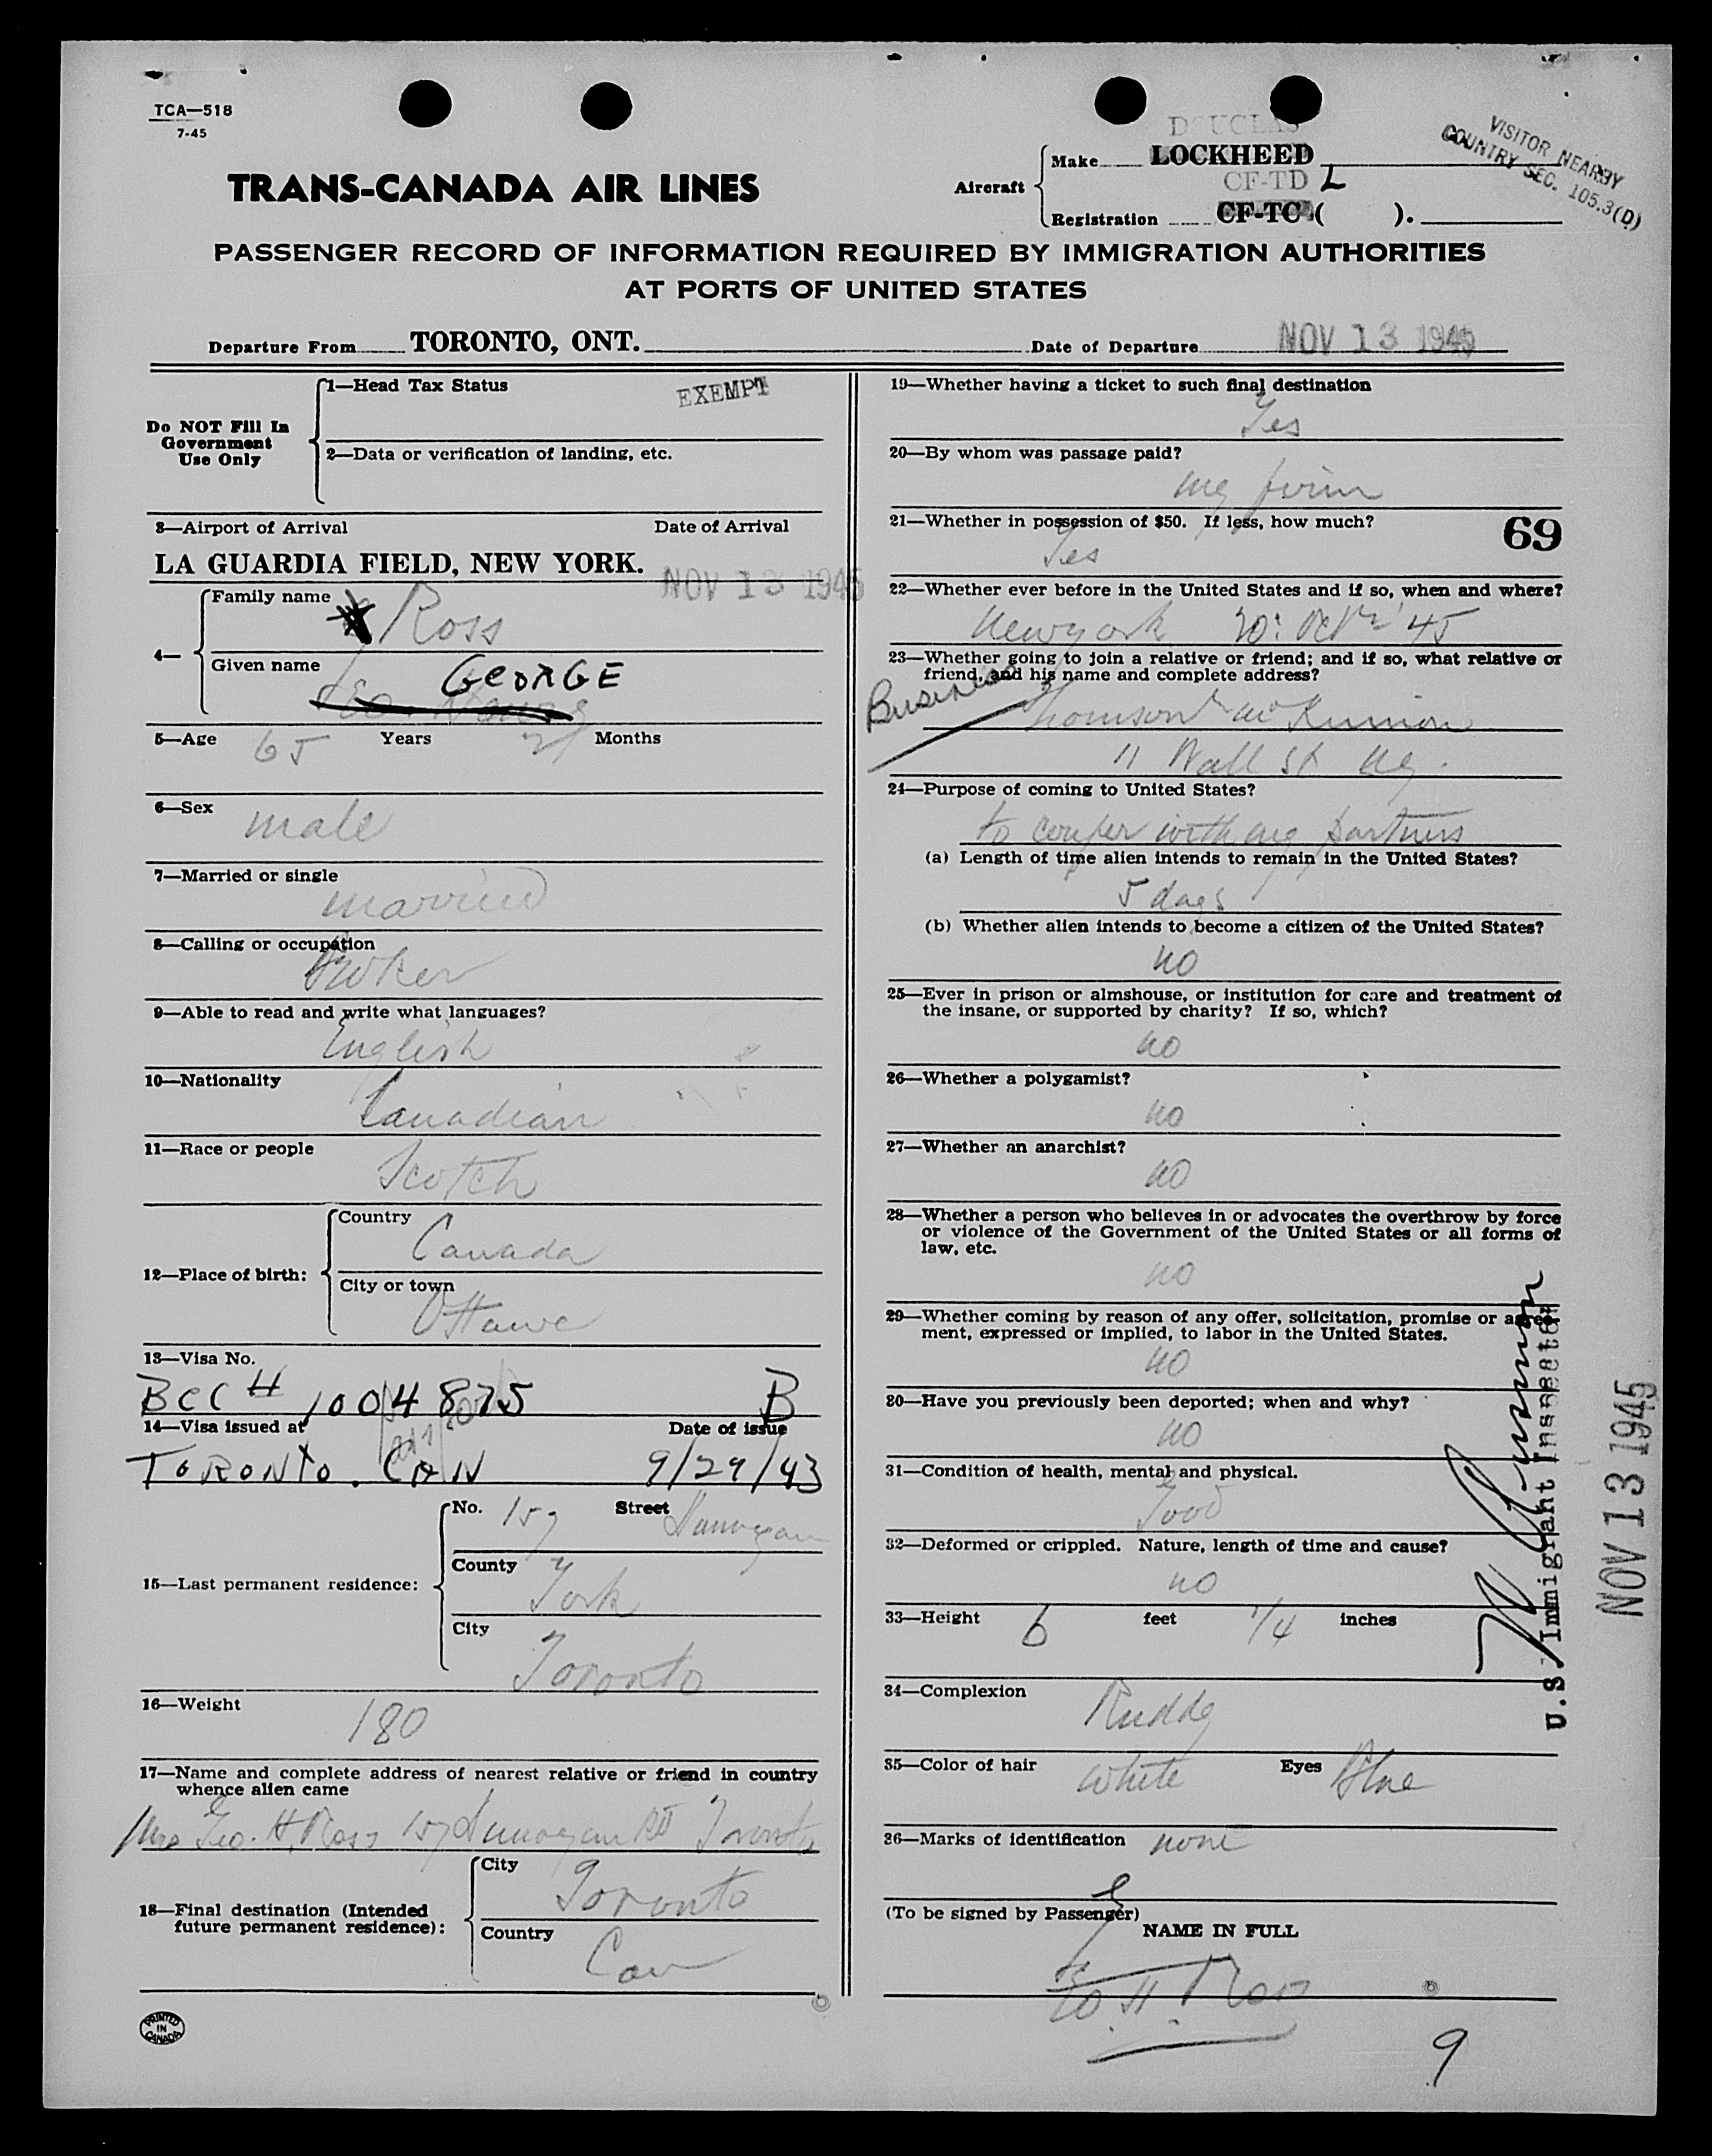 TCA—518
7-45
TRANS-CANADA AIR LINES
Aircraft
DOUGLAS
Make LOCKHEED
CF-TD L
Registration CF-TC ( ).
VISITOR NEARBY
COUNTRY SEC. 105.3(D)
PASSENGER RECORD OF INFORMATION REQUIRED BY IMMIGRATION AUTHORITIES
AT PORTS OF UNITED STATES
Departure From TORONTO, ONT. Date of Departure NOV 13 1945
Do NOT Fill In
Government
Use Only
1—Head Tax Status EXEMPT
2—Data or verification of landing, etc.
3—Airport of Arrival Date of Arrival
LA GUARDIA FIELD, NEW YORK. NOV 13 1945
4—
Family name Ross
Given name GEORGE
5—Age 65 Years 2 Months
6—Sex male
7—Married or single
married
8—Calling or occupation
Broker
9—Able to read and write what languages?
English
10—Nationality
Canadian
11—Race or people
Scotch
12—Place of birth:
Country
Canada
City or town
Ottawa
13—Visa No.
BCC # 1004875 B
14—Visa issued at Date of issue
TORONTO. CAN 9/29/43
15—Last permanent residence:
No. 157 Street Dunvegan
County
York
City
Toronto
16—Weight
180
17—Name and complete address of nearest relative or friend in country
whence alien came
Mrs Geo. H. Ross 157 Dunvegan Rd Toronto
18—Final destination (Intended
future permanent residence):
City
Toronto
Country
Can
PRINTED
IN
CANADA
19—Whether having a ticket to such final destination
Yes
20—By whom was passage paid?
my firm
21—Whether in possession of $50. If less, how much?
Yes
69
22—Whether ever before in the United States and if so, when and where?
New York 20: Oct '45
23—Whether going to join a relative or friend; and if so, what relative or
friend, and his name and complete address?
Business
Thomson & McKinnon
11 Wall St NY.
24—Purpose of coming to United States?
to confer with my partners
(a) Length of time alien intends to remain in the United States?
5 days
(b) Whether alien intends to become a citizen of the United States?
no
25—Ever in prison or almshouse, or institution for care and treatment of
the insane, or supported by charity? If so, which?
no
26—Whether a polygamist?
no
27—Whether an anarchist?
no
28—Whether a person who believes in or advocates the overthrow by force
or violence of the Government of the United States or all forms of
law, etc.
no
29—Whether coming by reason of any offer, solicitation, promise or agree-
ment, expressed or implied, to labor in the United States.
no
30—Have you previously been deported; when and why?
no
31—Condition of health, mental and physical.
Good
32—Deformed or crippled. Nature, length of time and cause?
no
33—Height 6 feet 1/4 inches
34—Complexion Ruddy
35—Color of hair white Eyes Blue
36—Marks of identification none
(To be signed by Passenger)
NAME IN FULL
Geo H Ross
9
U.S. Immigrant Inspector
NOV 13 1945